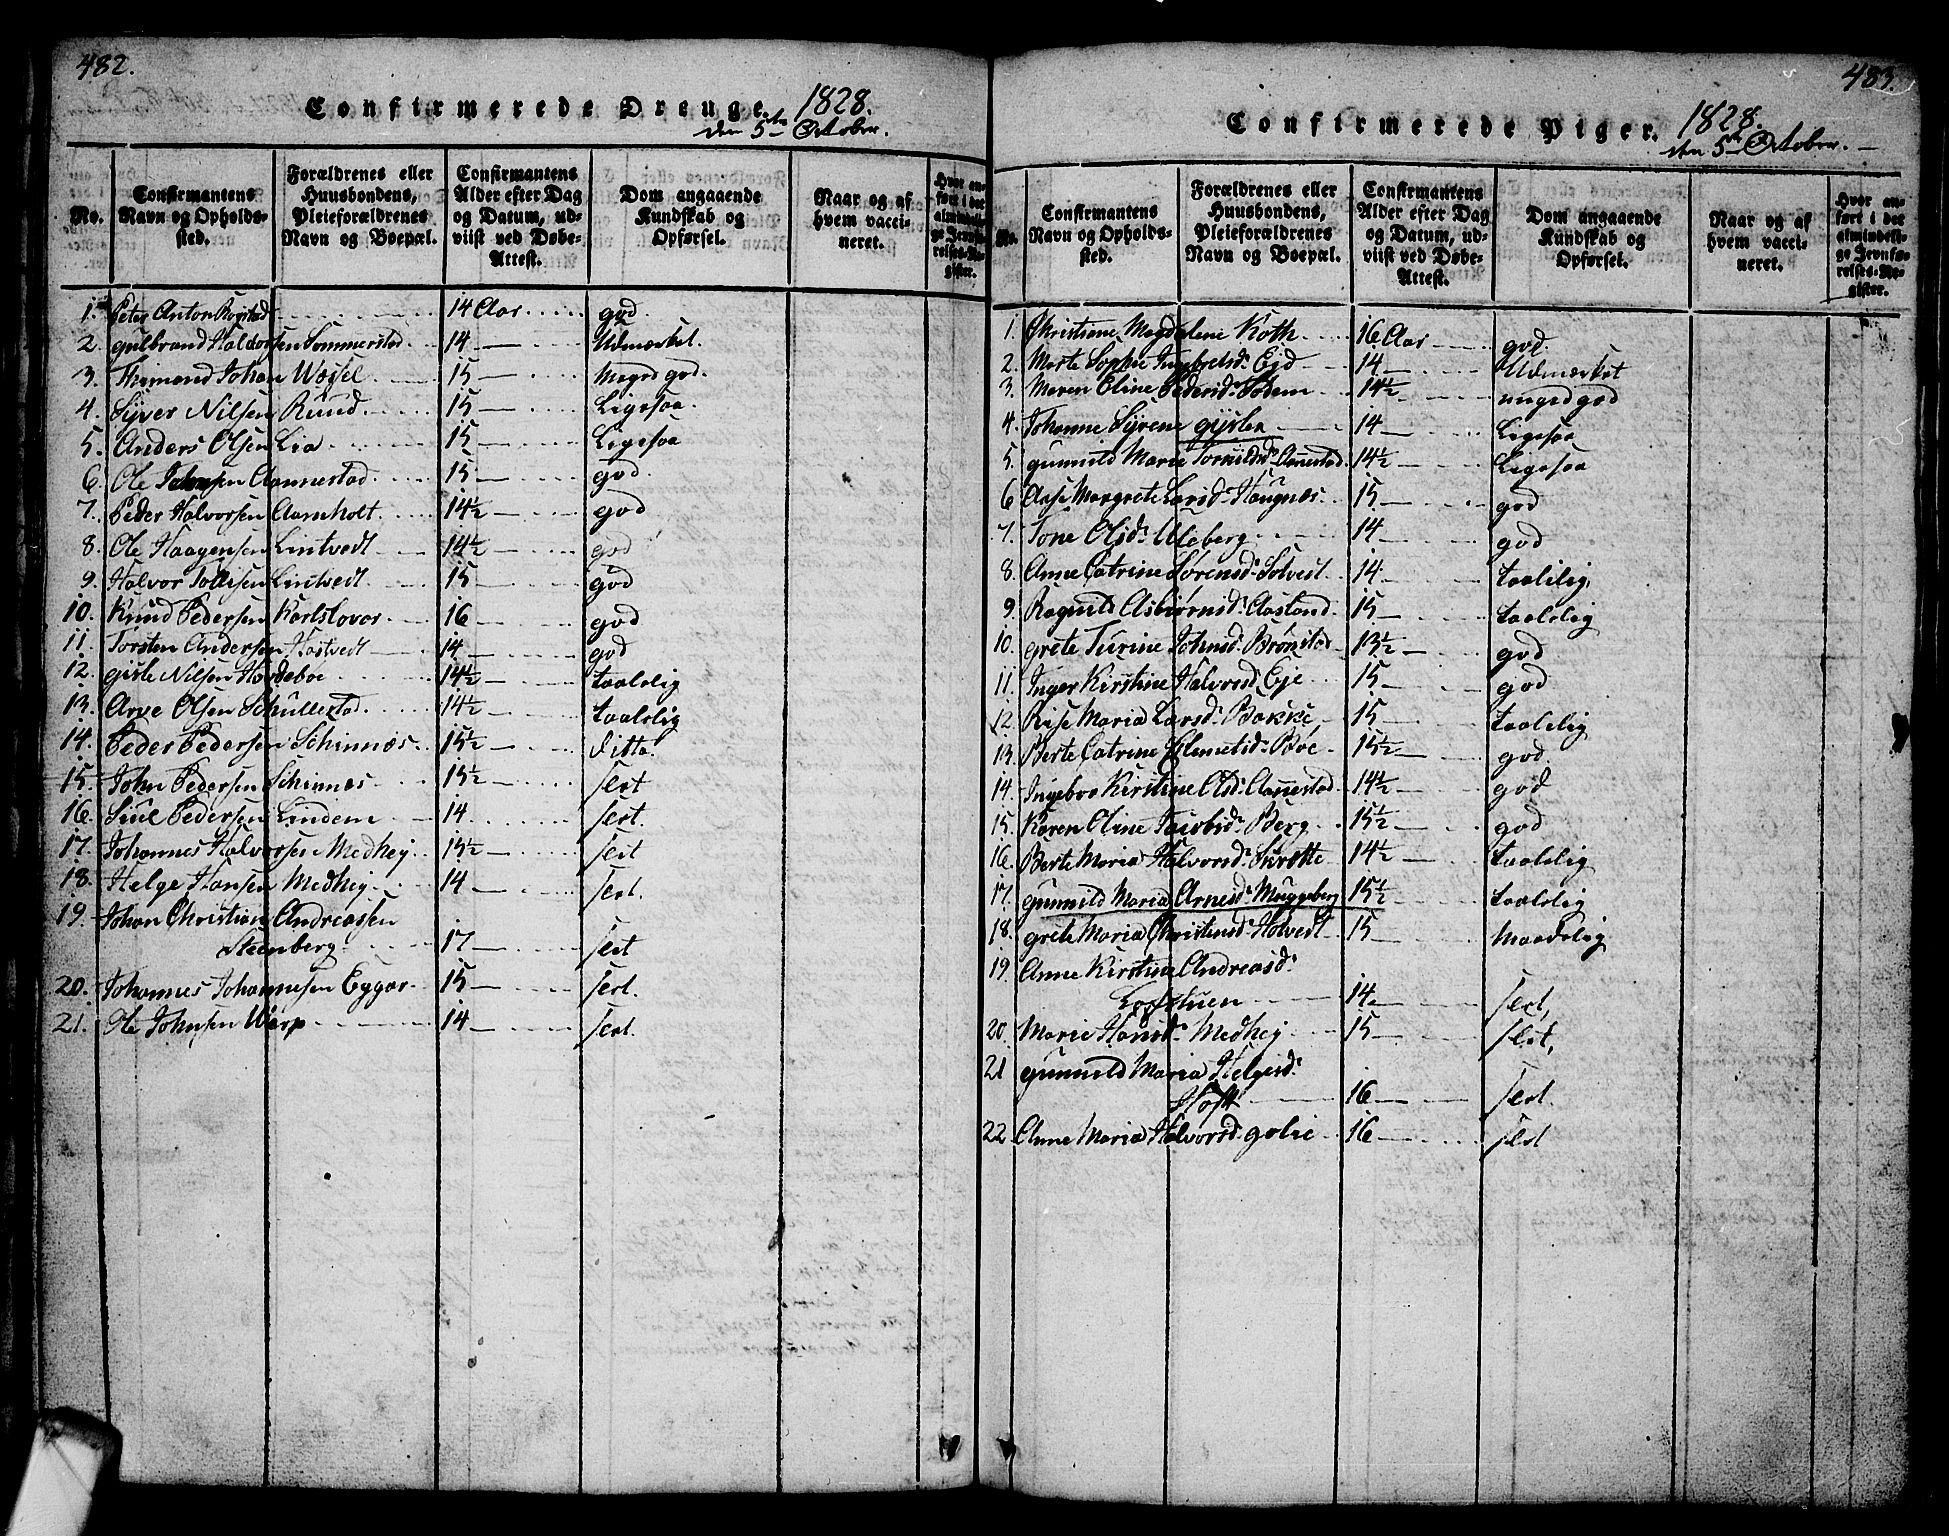 482.
Confirmerede Drenge. 1828.
den 5te October.
No.
Confirmantens Navn og Opholdssted.
Forældrenes eller Huusbondens, Pleieforældrenes Navn og Boepæl.
Confirmantens Alder efter Dag og Datum, udviist ved Døbe-Attest.
Dom angaaende Kundskab og Opførsel.
Naar og af hvem vaccineret.
Hvor anført i det almindelige Jevnførelses-Register.
1. Peter Anton Rogstad 14 Aar god.
2. Gulbrand Haldorsen Sommerstad 14 Udmærket.
3. Thimand Johan Wessel 15 Meget god.
4. Syver Nilsen Rund 15 Ligesaa.
5. Anders Olsen Lia 15 Ligesaa
6. Ole Johnsen Aannestad 15 god
7. Peder Halvorsen Aarnholt 14½ god
8. Ole Haagensen Lintvedt 14½ god
9. Halvor Tollisen Lintvedt 15 god
10. Knud Pedersen Karlslovar 16 god
11. Torsten Andersen Hastvedt 14 god
12. Gisle Nilsen Hordeboe 14½ taalelig
13. Arve Olsen Schullestad 14½ taalelig
14. Peder Pedersen Schinnæs 15½ ditto
15. John Pedersen Schinnæs 15½ slet
16. Siul Pedersen Lindem 14 slet.
17. Johannes Halvorsen Medhej 15½ slet
18. Helge Hansen Medhej 14 slet.
19. Johan Christian Andreassen
Steenberg 17 slet
20. Johannes Johannesen Eggar 15 slet.
21. Ole Johnsen Warp 14 slet.
483.
Confirmerede Piger. 1828.
den 5te October.
No.
Confirmantens Navn og Opholdssted.
Forældrenes eller Huusbondens, Pleieforældrenes Navn og Boepæl.
Confirmantens Alder efter Dag og Datum, udviist ved Døbe-Attest.
Dom angaaende Kundskab og Opførsel.
Naar og af hvem vaccineret.
Hvor anført i det almindelige Jevnførelses-Register.
1. Christiane Magdalene Koth 16 Aar god.
2. Marte Sophie Ingebretsd. Eid 14 Udmærket
3. Maren Eline Pedersd. Fodem 14½ meget god
4. Johanne Syrene Gysler 14 Ligesaa
5. Gunnild Marie Tornildsd. Aanestad 14½ Ligesaa
6. Aase Margrete Larsd. Haugnæs 15 god
7. Tone Olsd. Uleberg 14 god
8. Anne Catrine Sørensd. Solvest 14 taalelig,
9. Ragnild Asbiørnsd. Aasland 15 taalelig
10. Grete Turine Johnsd. Brønstad 13½ god
11. Inger Kirstine Halvorsd. Eje 15 god
12. Aase Maria Larsd. Bakke 15 taalelig
13. Berte Catrine Clemetsd. Bøe 15½ god.
14. Ingebor Kirstine Olsd. Aanestad 14½ god
15. Karen Oline Jacobsd. Berg 15½ god
16. Berte Maria Halvorsd. Surætte 14½ taalelig
17. Gunnild Maria Arnesd. Muggeberg 15½ taalelig
18. Grete Maria Christensd. Holvedt 15 Maadelig
19. Anne Kirstine Andreasd.
Lofstuen 14 slet,
20. Marie Hansd. Medhej 15 slet,
21 Gunnild Maria Helgesd.
Høft 16 slet.
22. Anne Maria Halvorsd. Golie 16 slet